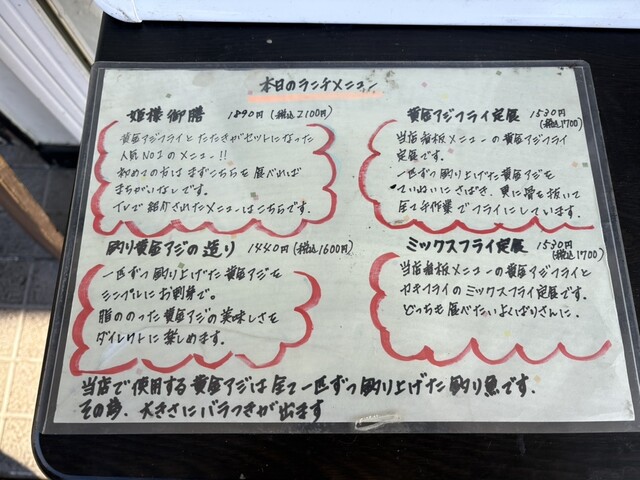 本日のランチメニュー
姫様御膳 1890円(税込2100円)
黄金アジフライとたたきがセットになった
人気NO1のメニュー!!
初めての方はまずこちらを食べれば
まちがいなしです。
TVで紹介されたメニューはこちらです。
黄金アジフライ定食 1530円
(税込1700)
当店看板メニューの黄金アジフライ
定食です。
一匹ずつ釣り上げた黄金アジを
ていねいにさばき、更に骨を抜いて
全て手作業でフライにしています。
釣り黄金アジの造り 1440円(税込1600円)
一匹ずつ釣り上げた黄金アジを
シンプルにお刺身で。
脂ののった黄金アジの美味しさを
ダイレクトに楽しめます。
ミックスフライ定食 1530円
(税込1700)
当店看板メニューの黄金アジフライと
カキフライのミックスフライ定食です。
どっちも食べたいよくばりさんに。
当店で使用する黄金アジは全て一匹ずつ釣り上げた釣り魚です。
その為、大きさにバラつきが出ます